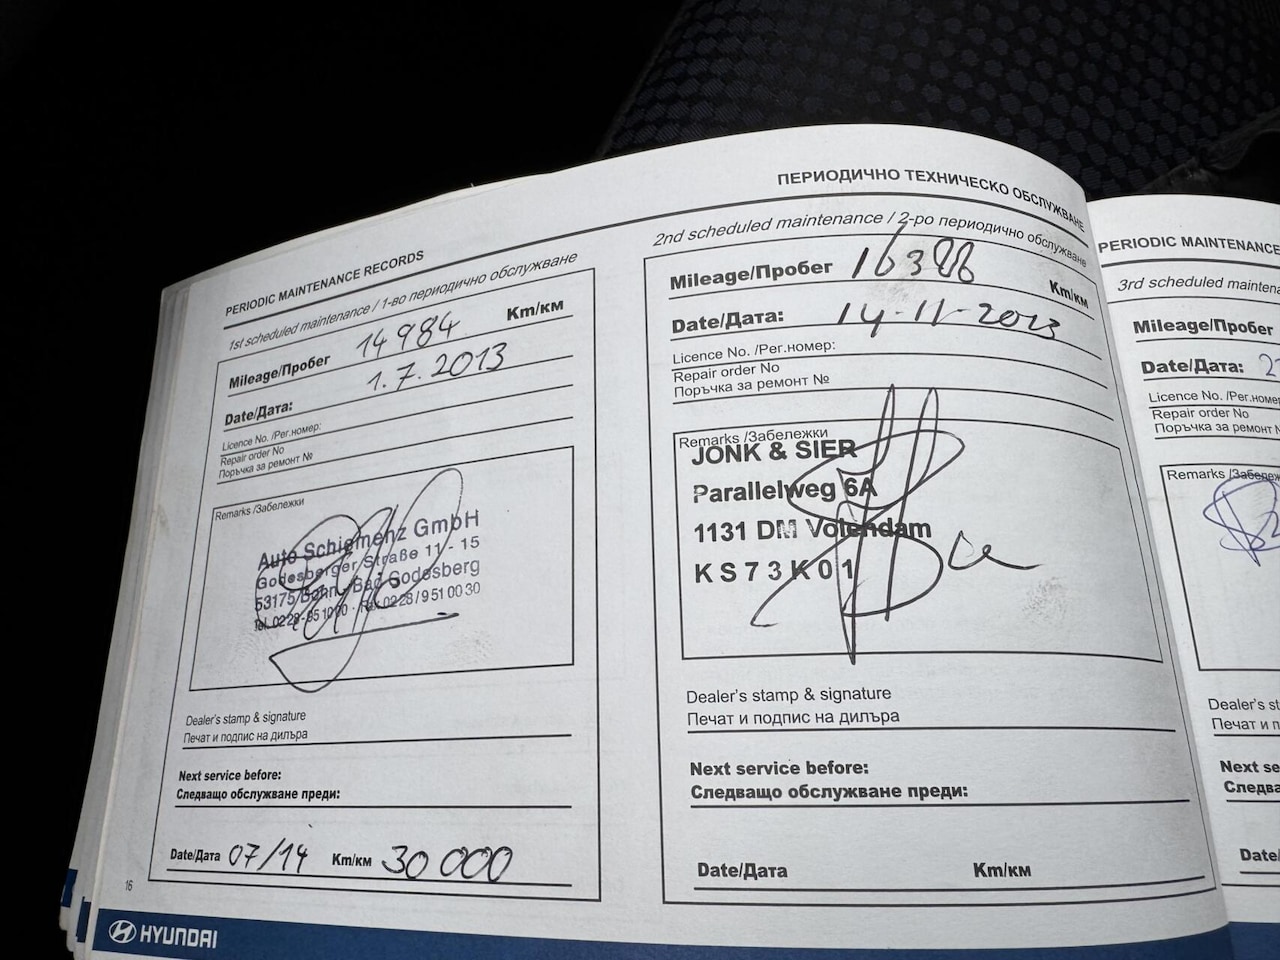 ПЕРИОДИЧНО ТЕХНИЧЕСКО ОБСЛУЖВАНЕ
PERIODIC MAINTENANCE RECORDS
1st scheduled maintenance / 1-во периодично обслужване
Mileage/Пробег 14984 Km/км
Date/Дата: 1.7.2013
Licence No. /Рег.номер:
Repair order No
Поръчка за ремонт №
Remarks /Забележки
Auto Schiemenz GmbH
Godesberger Straße 11 - 15
53175 Bonn - Bad Godesberg
Dealer's stamp & signature
Печат и подпис на дилъра
Next service before:
Следващо обслужване преди:
Date/Дата 07/14 Km/км 30 000
16
HYUNDAI
2nd scheduled maintenance / 2-ро периодично обслужване
Mileage/Пробег Km/км
Date/Дата: 14-11-2013
Licence No. /Рег.номер:
Repair order No
Поръчка за ремонт №
Remarks /Забележки
JONK & SIER
Parallelweg 6A
1131 DM Volendam
KS73K01
Dealer's stamp & signature
Печат и подпис на дилъра
Next service before:
Следващо обслужване преди:
Date/Дата Km/км
PERIODIC MAINTENANCE
3rd scheduled
Mileage/Пробег
Date/Дата:
Licence No. /Рег.
Repair order No
Поръчка за ремонт
Remarks
Dealer's
Печат и
Next
Date/